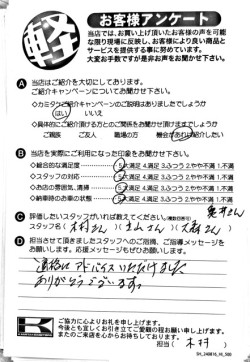 軽
お客様アンケート
当店では、お買い上げ頂いたお客様の声を可能
な限り現場に反映し、お客様により良い商品と
サービスを提供する事に努めています。
大変お手数ですが是非お声をお聞かせ下さい。
A 当店はご紹介を大切にしております。
ご紹介キャンペーンについてお聞かせ下さい。
◇カミタケご紹介キャンペーンのご説明はありましたでしょうか
はい いいえ
◇具体的にご紹介頂ける方とのご関係をお聞かせ頂けますでしょうか
ご親族 ご友人 職場の方 機会があれば紹介したい
B 当店を実際にご利用になった印象をお聞かせ下さい。
◇総合的な満足度 5.大満足 4.満足 3.ふつう 2.やや不満 1.不満
◇スタッフの対応 5.大満足 4.満足 3.ふつう 2.やや不満 1.不満
◇お店の雰囲気、清掃 5.大満足 4.満足 3.ふつう 2.やや不満 1.不満
◇納車時のお車の状態 5.大満足 4.満足 3.ふつう 2.やや不満 1.不満
C 評価したいスタッフがいれば教えてください。(複数回答可)
スタッフ名 (木村さん)( さん)( さん) さん
D 担当させて頂きましたスタッフへのご指摘、ご指導メッセージを
お願いします。応援メッセージもぜひお願いします。
適格にアドバイスいただけました
ありがとうございます。
ご協力に心よりお礼を申し上げます。
今後とも宜しくお引き立てご愛顧の程お願い申し上げます。
またのご来店を心からお待ちしております。
担当( 木村 )